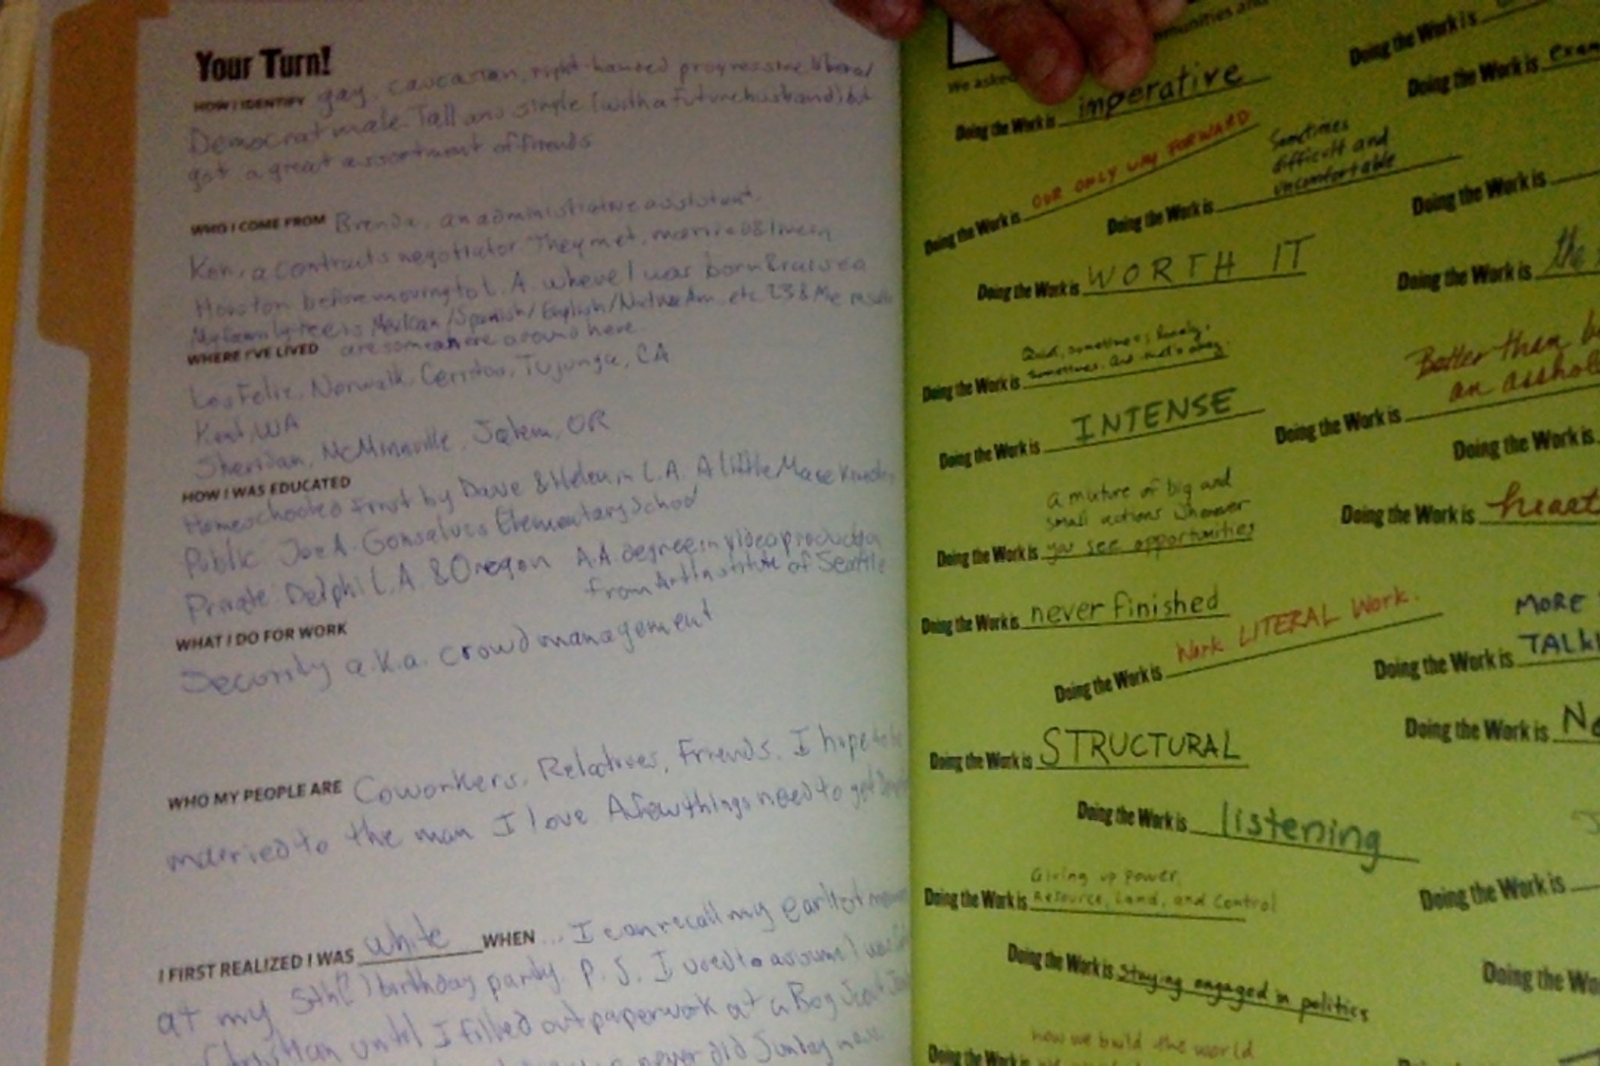 Your Turn!
HOW I IDENTIFY gay, caucasian, right-handed progressive liberal
Democrat male. Tall and single (with a future husband) but
got a great assortment of friends
WHO I COME FROM Brenda, an administrative assistant.
Ken, a contracts negotiator They met, married & lived in
Houston before moving to L.A. where I was born & raised
My family tree is Mexican/Spanish/English/Native Am. etc. 23 & Me results
are somewhere around here.
WHERE I'VE LIVED
Los Feliz, Norwalk, Cerritos, Tujunga, CA
Kent, WA
Sheridan, McMinnville, Salem, OR
HOW I WAS EDUCATED
Homeschooled first by Dave & Helen in L.A. A little
Public Joe A. Gonsalves Elementary School
Private Delphi L.A. & Oregon A.A. degree in video production
from Art Institute of Seattle
WHAT I DO FOR WORK
Security a.k.a. crowd management
WHO MY PEOPLE ARE Coworkers, Relatives, Friends. I hope to be
married to the man I love A few things need to get
I FIRST REALIZED I WAS white WHEN ... I can recall my earliest
at my 5th(?) birthday party. P.S. I used to assume I was
Christian until I filled out paperwork at a Boy Scout
never did Sunday mass.
We asked
Doing the Work is imperative
Doing the Work is OUR ONLY WAY FORWARD
Doing the Work is Sometimes
difficult and
uncomfortable
Doing the Work is WORTH IT
Doing the Work is Quiet, sometimes; lonely,
sometimes. And that's okay.
Doing the Work is INTENSE
Doing the Work is a mixture of big and
small actions whenever
you see opportunities
Doing the Work is never finished
Doing the Work is Work LITERAL Work.
Doing the Work is STRUCTURAL
Doing the Work is listening
Doing the Work is Giving up power,
Resource, Land, and Control
Doing the Work is Staying engaged in politics
Doing the Work is how we build the world
Doing the Work is
Doing the Work is
Doing the Work is
Doing the Work is the
Doing the Work is Better than
an
Doing the Work is
Doing the Work is heart
Doing the Work is MORE
Doing the Work is
Doing the Work is
Doing the Wo